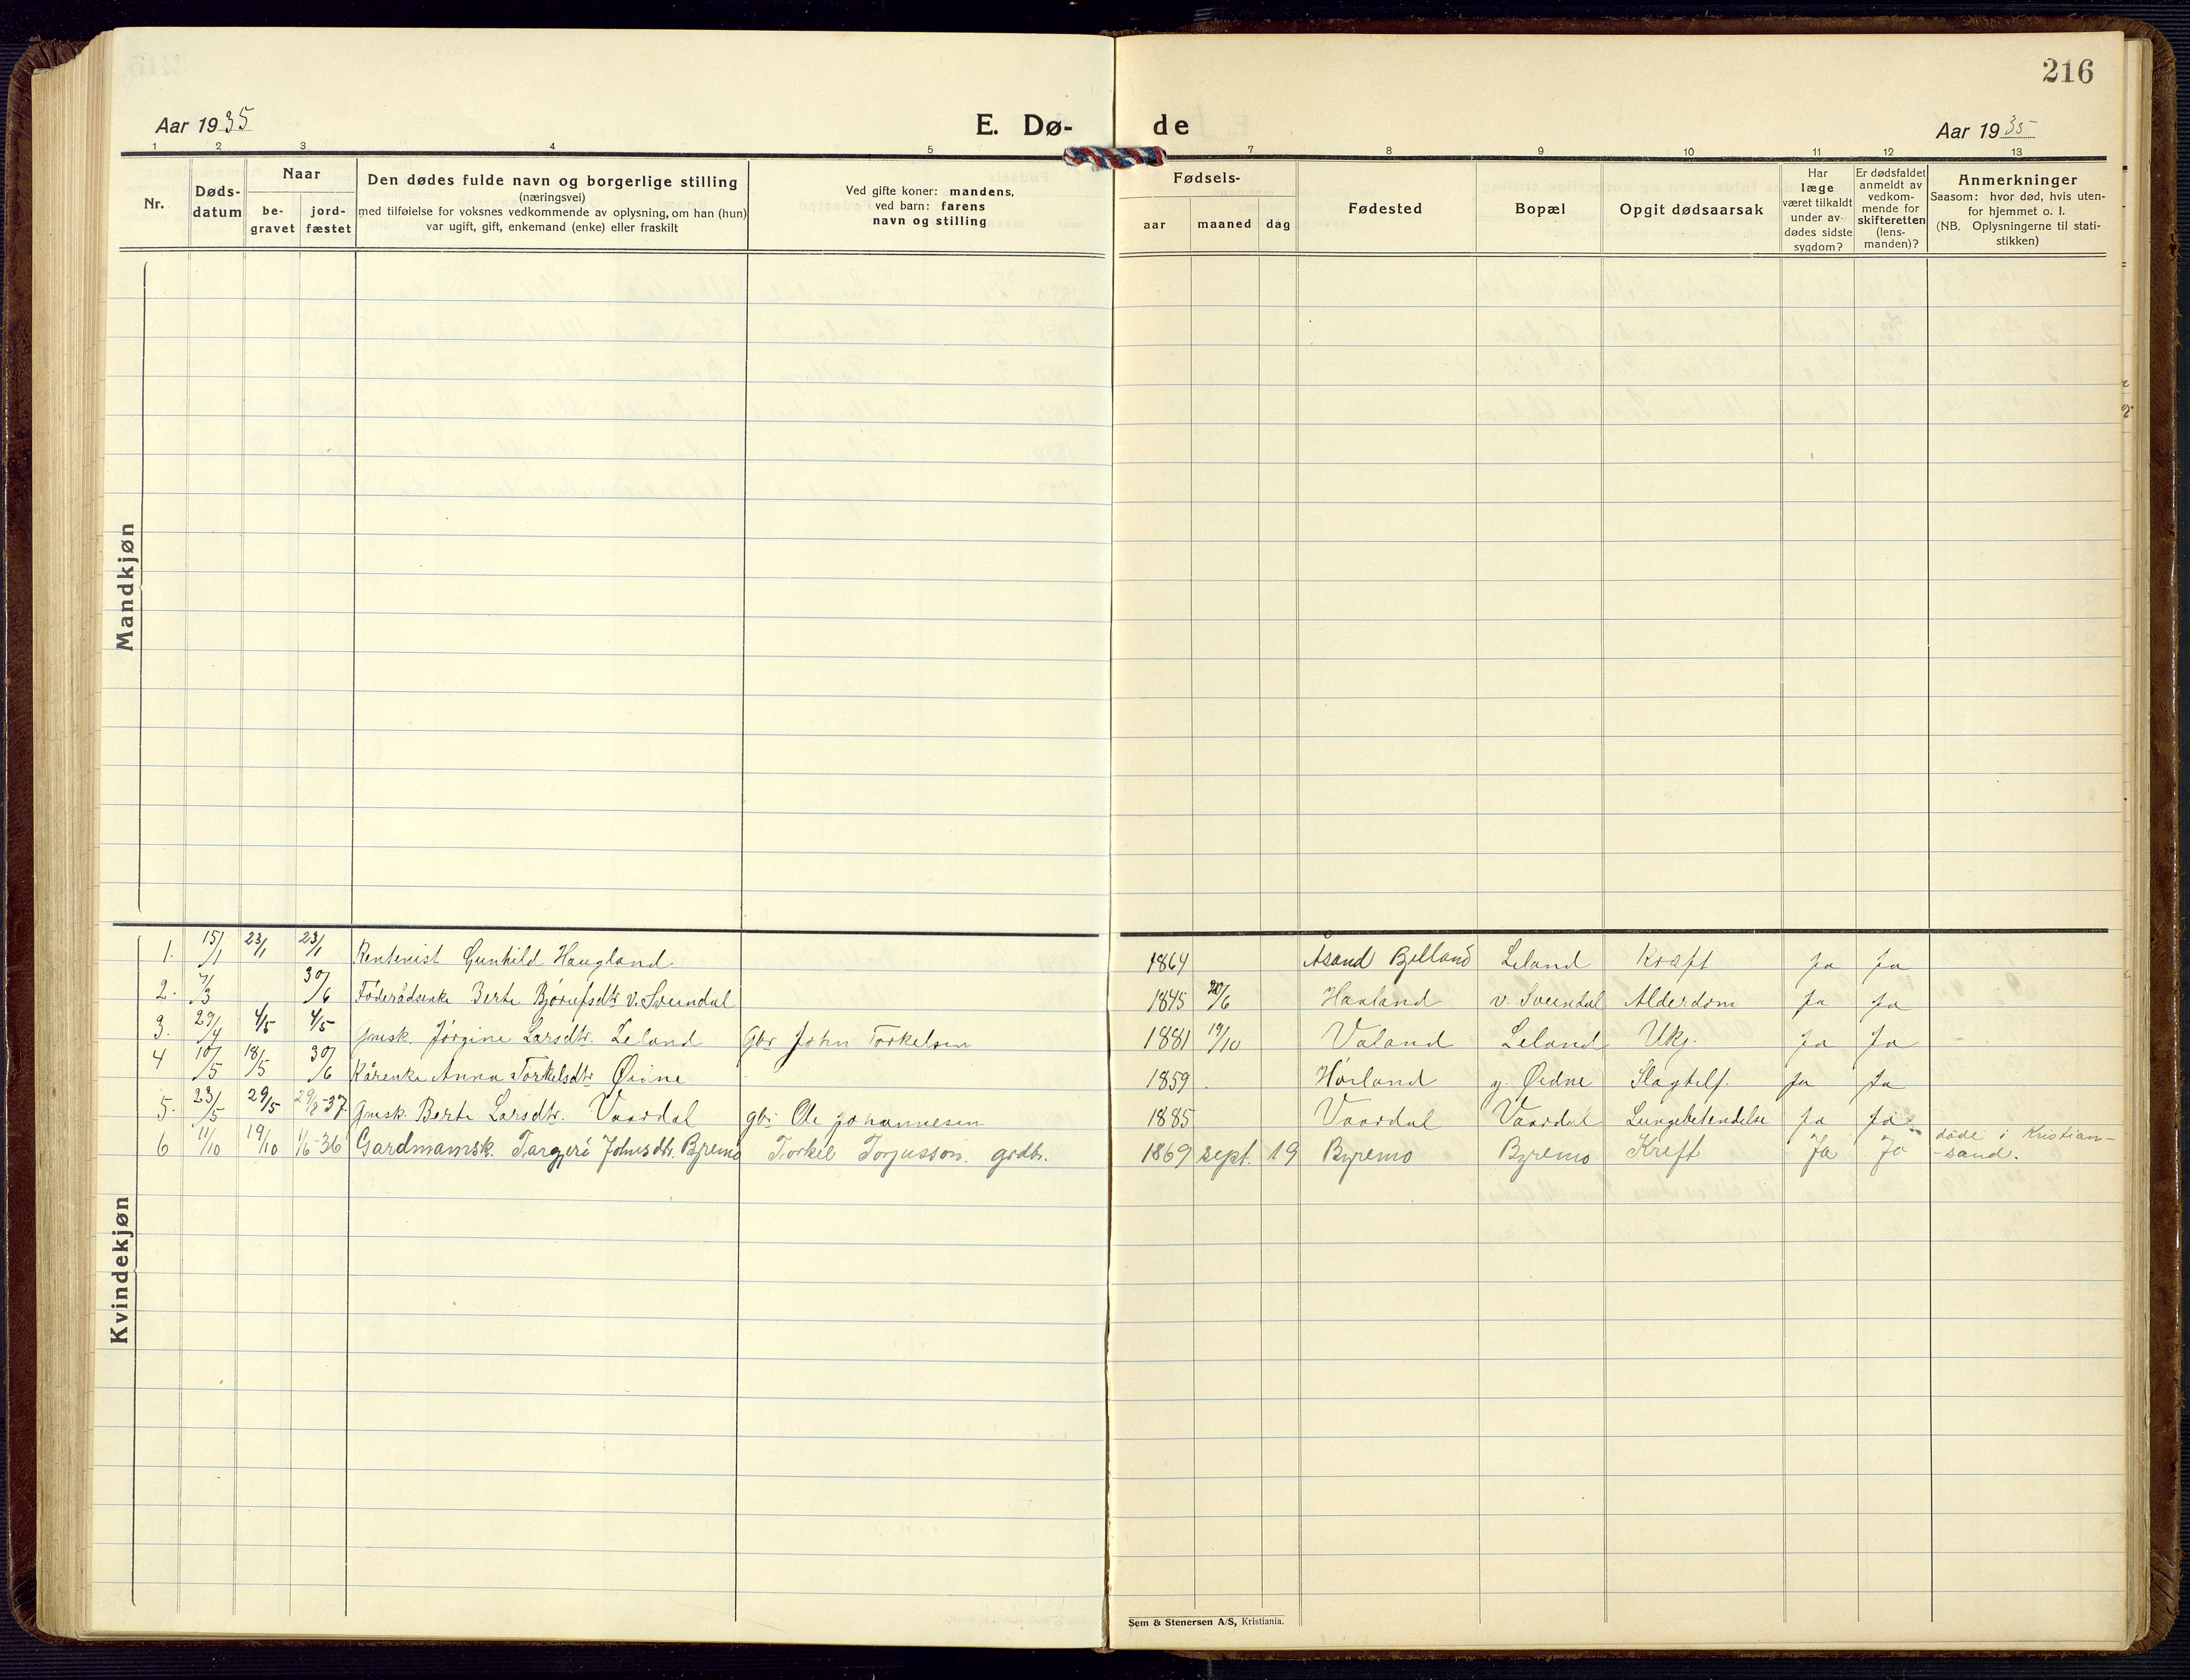 216
Aar 1935
E. Dø-
de
Aar 1935
1 2 3 4 5 7 8 9 10 11 12 13
Nr.
Døds-
datum
Naar
be-
gravet
jord-
fæstet
Den dødes fulde navn og borgerlige stilling
(næringsvei)
med tilføielse for voksnes vedkommende av oplysning, om han (hun)
var ugift, gift, enkemand (enke) eller fraskilt
Ved gifte koner: mandens,
ved barn: farens
navn og stilling
Fødsels-
aar maaned dag
Fødested
Bopæl
Opgit dødsaarsak
Har
læge
været tilkaldt
under av-
dødes sidste
sygdom?
Er dødsfaldet
anmeldt av
vedkom-
mende for
skifteretten
(lens-
manden)?
Anmerkninger
Saasom: hvor død, hvis uten-
for hjemmet o. l.
(NB. Oplysningerne til stati-
stikken)
Mandkjøn
Kvindekjøn
1. 15/1 23/1 23/1 Rentenist Gunhild Haugland. 1864 Åsand Bjelland Leland Kræft Ja Ja
2. 7/3 30/6 Föderådsenke Berte Bjørufsdtr v. Sveindal 1845 20/6 Haaland v. Sveindal Alderdom Ja Ja
3. 29/4 4/5 4/5 Gmsk. Jørgine Larsdtr. Leland Gbr John Torkelsen 1881 19/10 Valand Leland Ukj. Ja Ja
4 10/5 18/5 30/6 Kårenke Anna Torkelsdtr Øidne 1859 Hørland y. Øidne Slagtilf. Ja Ja
5. 23/5 29/5 29/8-37. Gmsk. Berte Larsdtr. Vaardal gbr. Ole Johannesen 1885 Vaardal Vaardal Lungebetendelse Ja Ja
6 11/10 19/10 1/6-36 Gardmannsk. Targjerd Johnsdtr. Byremo Torkel Torjusson. grdbr. 1869 sept. 19 Byremo Byremo Kreft Ja Ja döde i Kristian-
-sand.
Sem & Stenersen A/S, Kristiania.